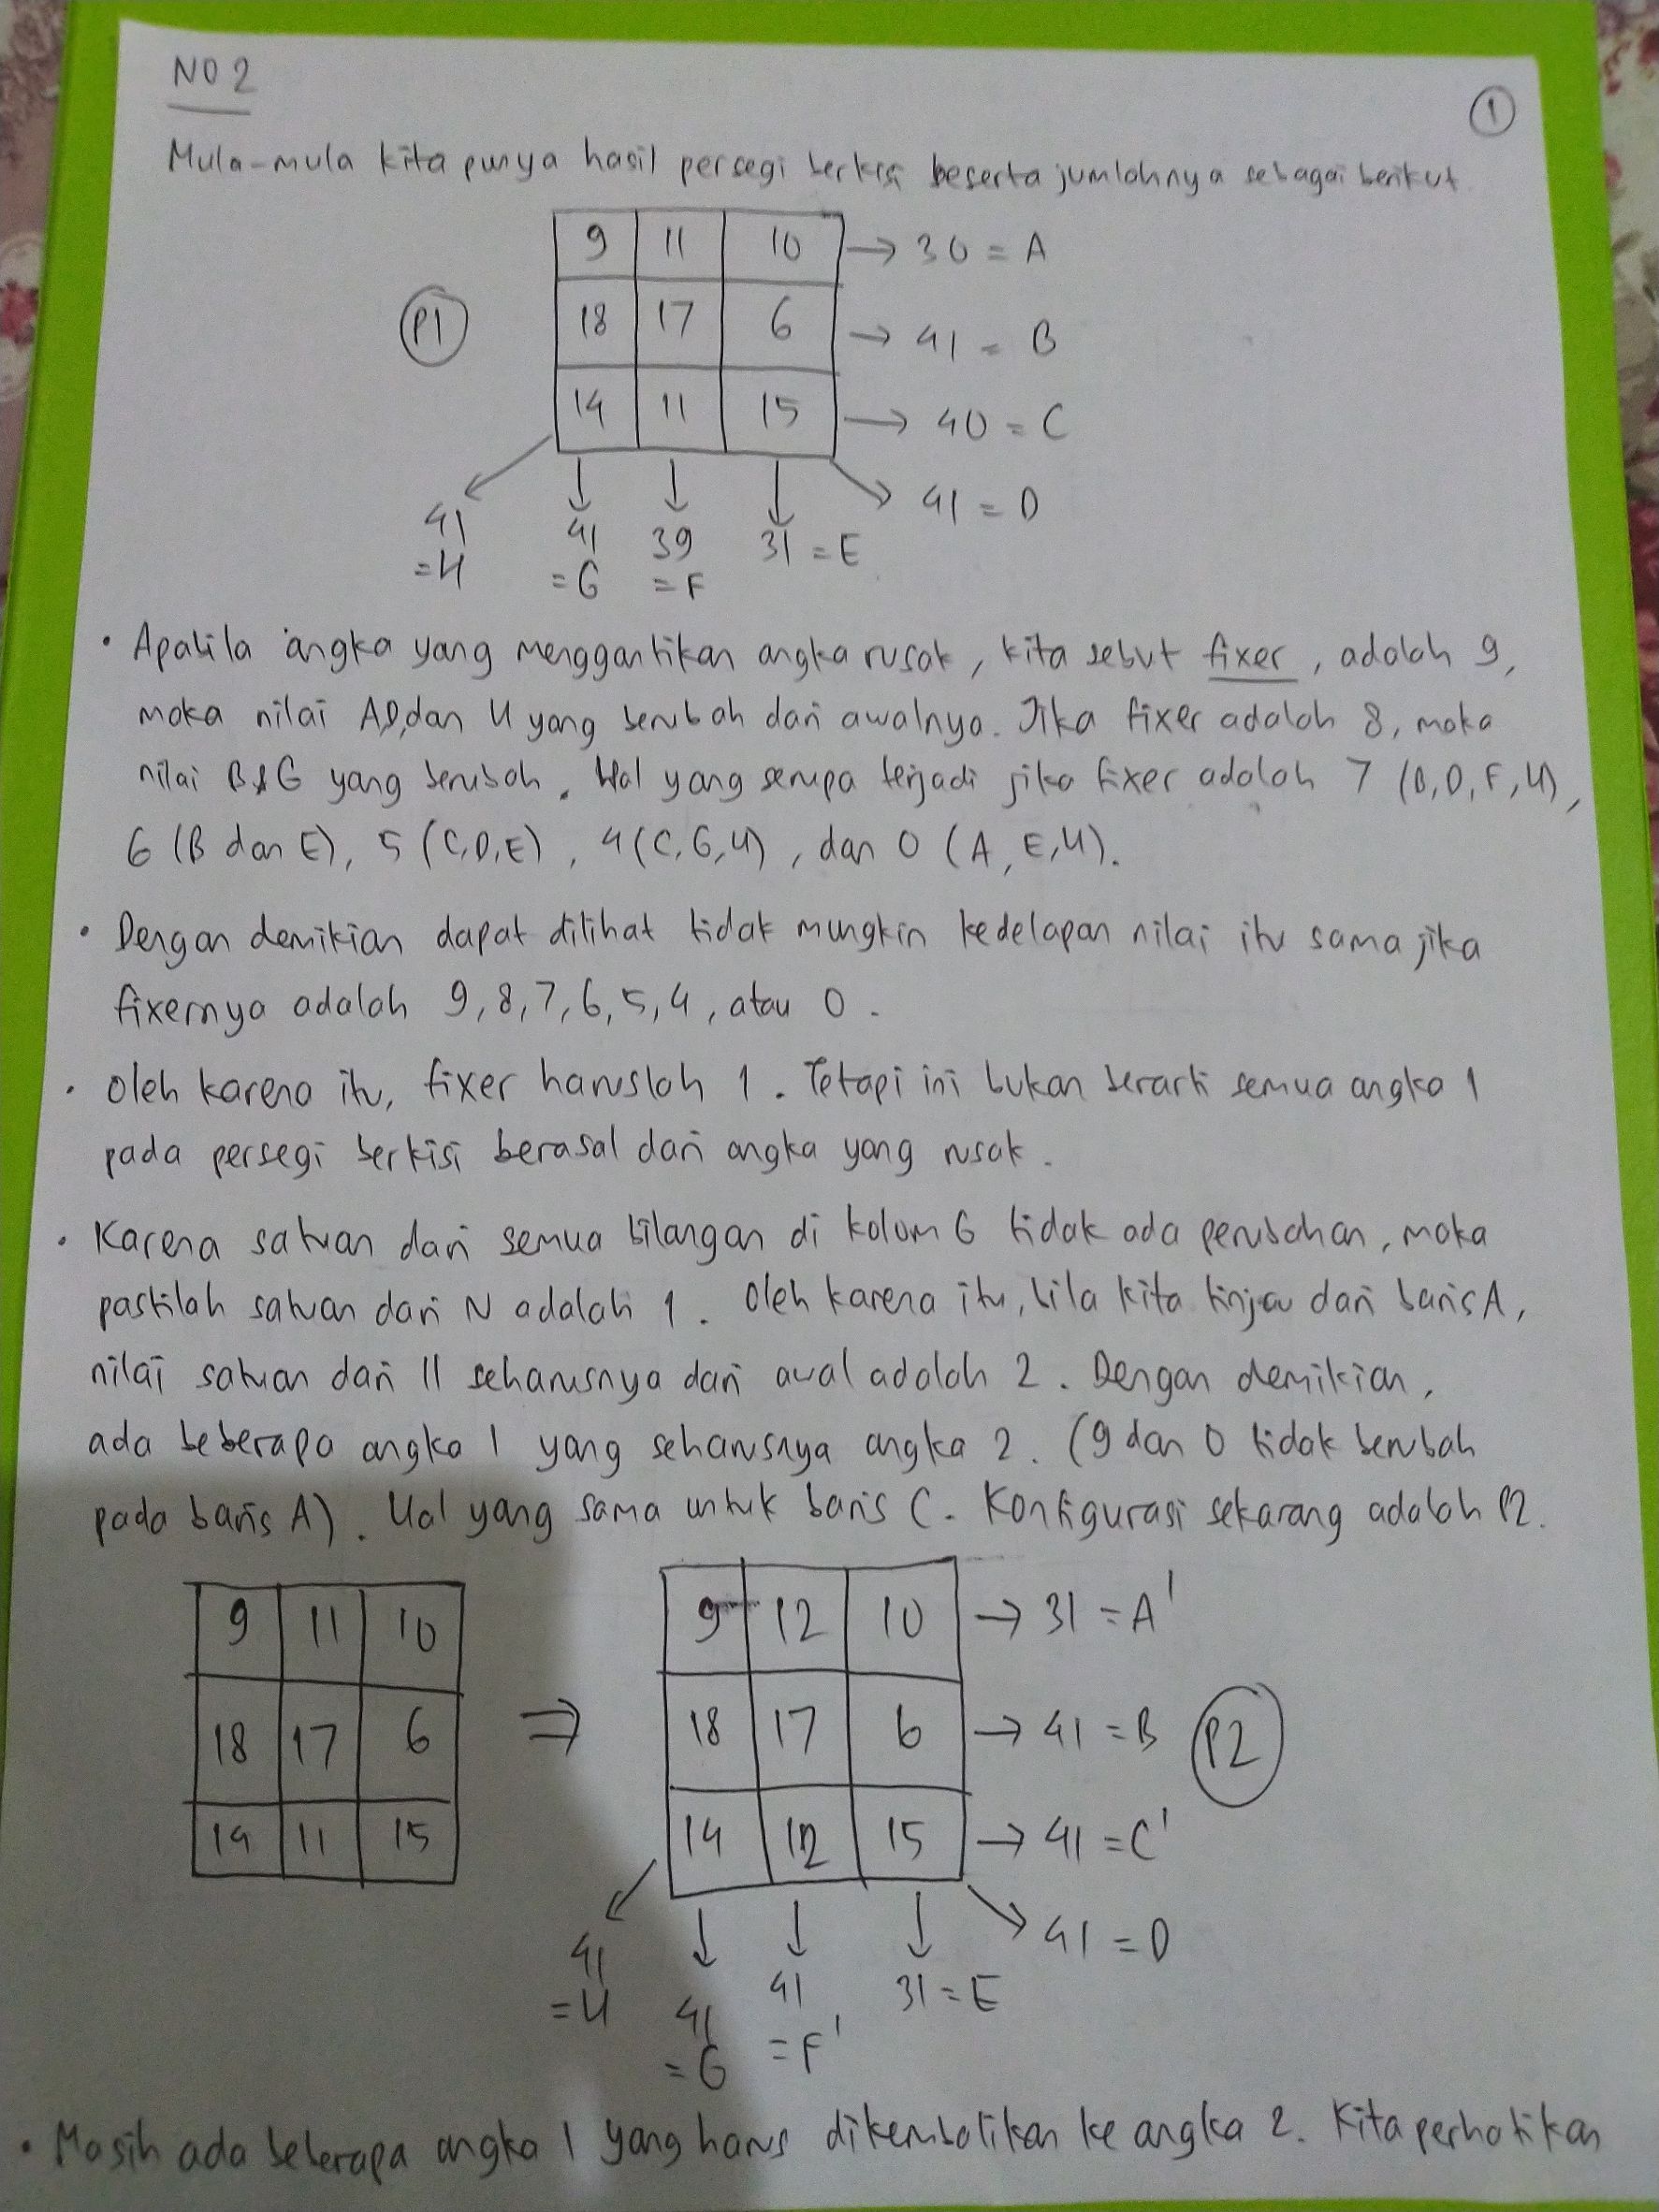 NO 2
1
Mula-mula kita punya hasil persegi berkisi beserta jumlahnya sebagai berikut
9 11 10 → 30 = A
P1 18 17 6 → 41 = B
14 11 15 → 40 = C
41 = H
41 = G
39 = F
31 = E
41 = D
• Apabila angka yang menggantikan angka rusak, kita sebut fixer, adalah 9,
maka nilai A,D,dan H yang berubah dari awalnya. Jika fixer adalah 8, maka
nilai B&G yang berubah. Hal yang serupa terjadi jika fixer adalah 7 (B,D,F,H),
6 (B dan E), 5 (C,D,E), 4 (C,G,H), dan 0 (A,E,H).
• Dengan demikian dapat dilihat tidak mungkin kedelapan nilai itu sama jika
fixernya adalah 9,8,7,6,5,4, atau 0.
• Oleh karena itu, fixer haruslah 1. Tetapi ini bukan berarti semua angka 1
pada persegi berkisi berasal dari angka yang rusak.
• Karena satuan dari semua bilangan di kolom G tidak ada perubahan, maka
pastilah satuan dari N adalah 1. Oleh karena itu, bila kita tinjau dari baris A,
nilai satuan dari 11 seharusnya dari awal adalah 2. Dengan demikian,
ada beberapa angka 1 yang seharusnya angka 2. (9 dan 0 tidak berubah
pada baris A). Hal yang sama untuk baris C. Konfigurasi sekarang adalah P2.
9 11 10
18 17 6
14 11 15
⇒
9 12 10 → 31 = A'
18 17 6 → 41 = B P2
14 12 15 → 41 = C'
41 = H
41 = G
41 = F'
31 = E
41 = D
• Masih ada beberapa angka 1 yang harus dikembalikan ke angka 2. Kita perhatikan